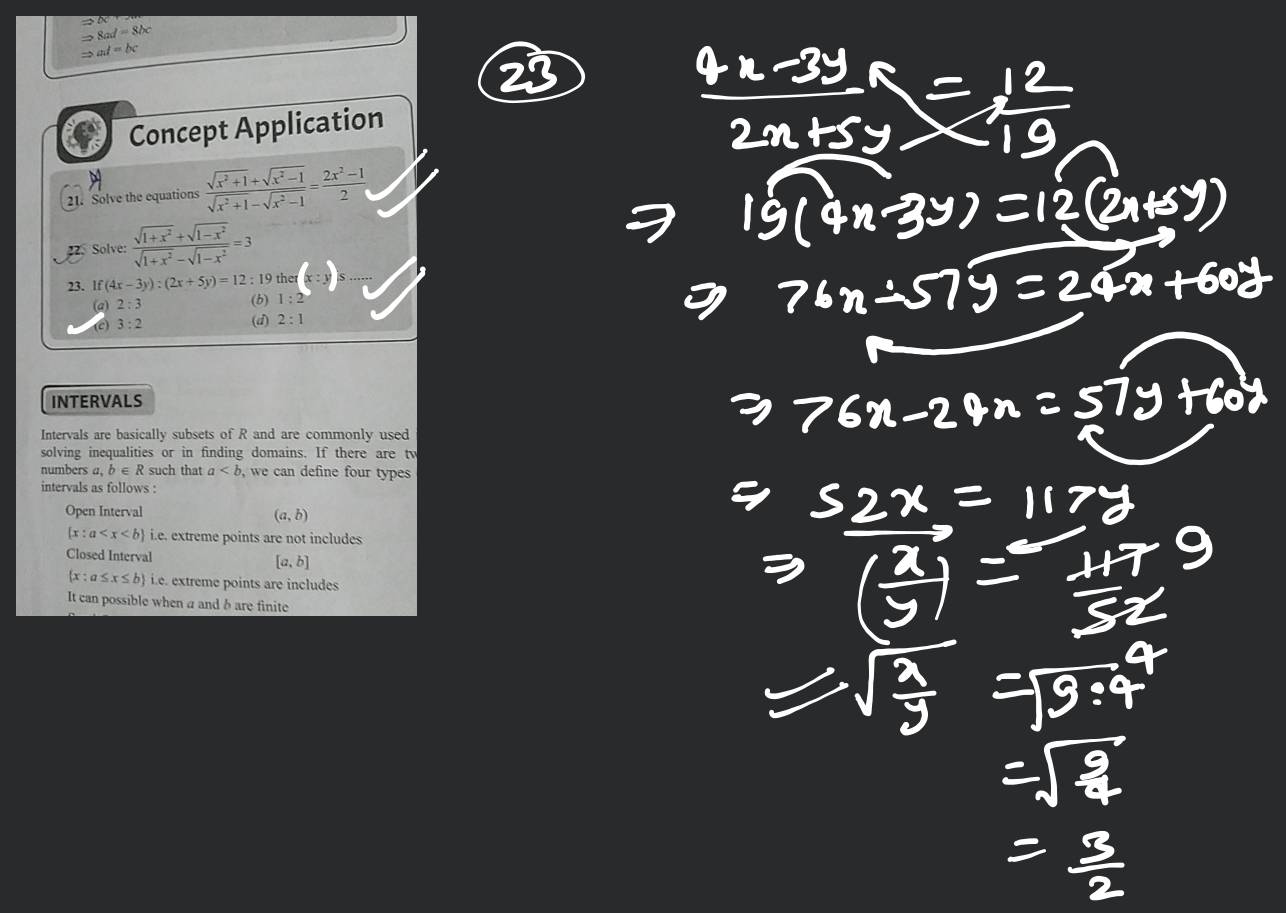 ⇒ 8ad = 8bc
⇒ ad = bc
Concept Application
21. Solve the equations (√(x² +1) + √(x² −1))/(√(x² +1) − √(x² −1)) = (2x² −1)/2
22. Solve: (√(1+x²) + √(1−x²))/(√(1+x²) − √(1−x²)) = 3
23. If (4x − 3y) : (2x + 5y) = 12 : 19 then (x : y) is ......
(a) 2 : 3 (b) 1 : 2
(c) 3 : 2 (d) 2 : 1
INTERVALS
Intervals are basically subsets of R and are commonly used
solving inequalities or in finding domains. If there are
numbers a, b ∈ R such that a < b, we can define four types
intervals as follows :
Open Interval (a, b)
{x : a < x < b} i.e. extreme points are not includes
Closed Interval [a, b]
{x : a ≤ x ≤ b} i.e. extreme points are includes
It can possible when a and b are finite
23
(4x − 3y)/(2x + 5y) = 12/19
⇒ 19(4x − 3y) = 12(2x + 5y)
⇒ 76x − 57y = 24x + 60y
⇒ 76x − 24x = 57y + 60y
⇒ 52x = 117y
⇒ (x/y) = 117/52 9
4
√(x/y) = √(9:4)
= √(9/4)
= 3/2